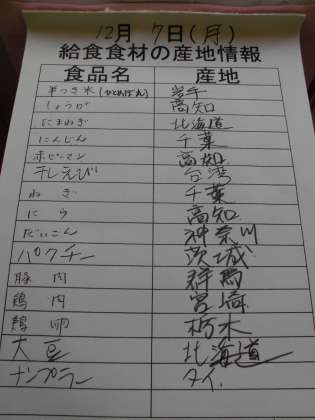 12月 7日(月)
給食食材の産地情報
食品名 産地
半つき米(ひとめぼれ) 岩手
しょうが 高知
にまねぎ 北海道
にんじん 千葉
赤ピーマン 高知
干しえび 台湾
ねぎ 千葉
にら 高知
だいこん 神奈川
パクチー 茨城
豚肉 群馬
鶏肉 宮崎
鶏卵 栃木
大豆 北海道
ナンプラー タイ